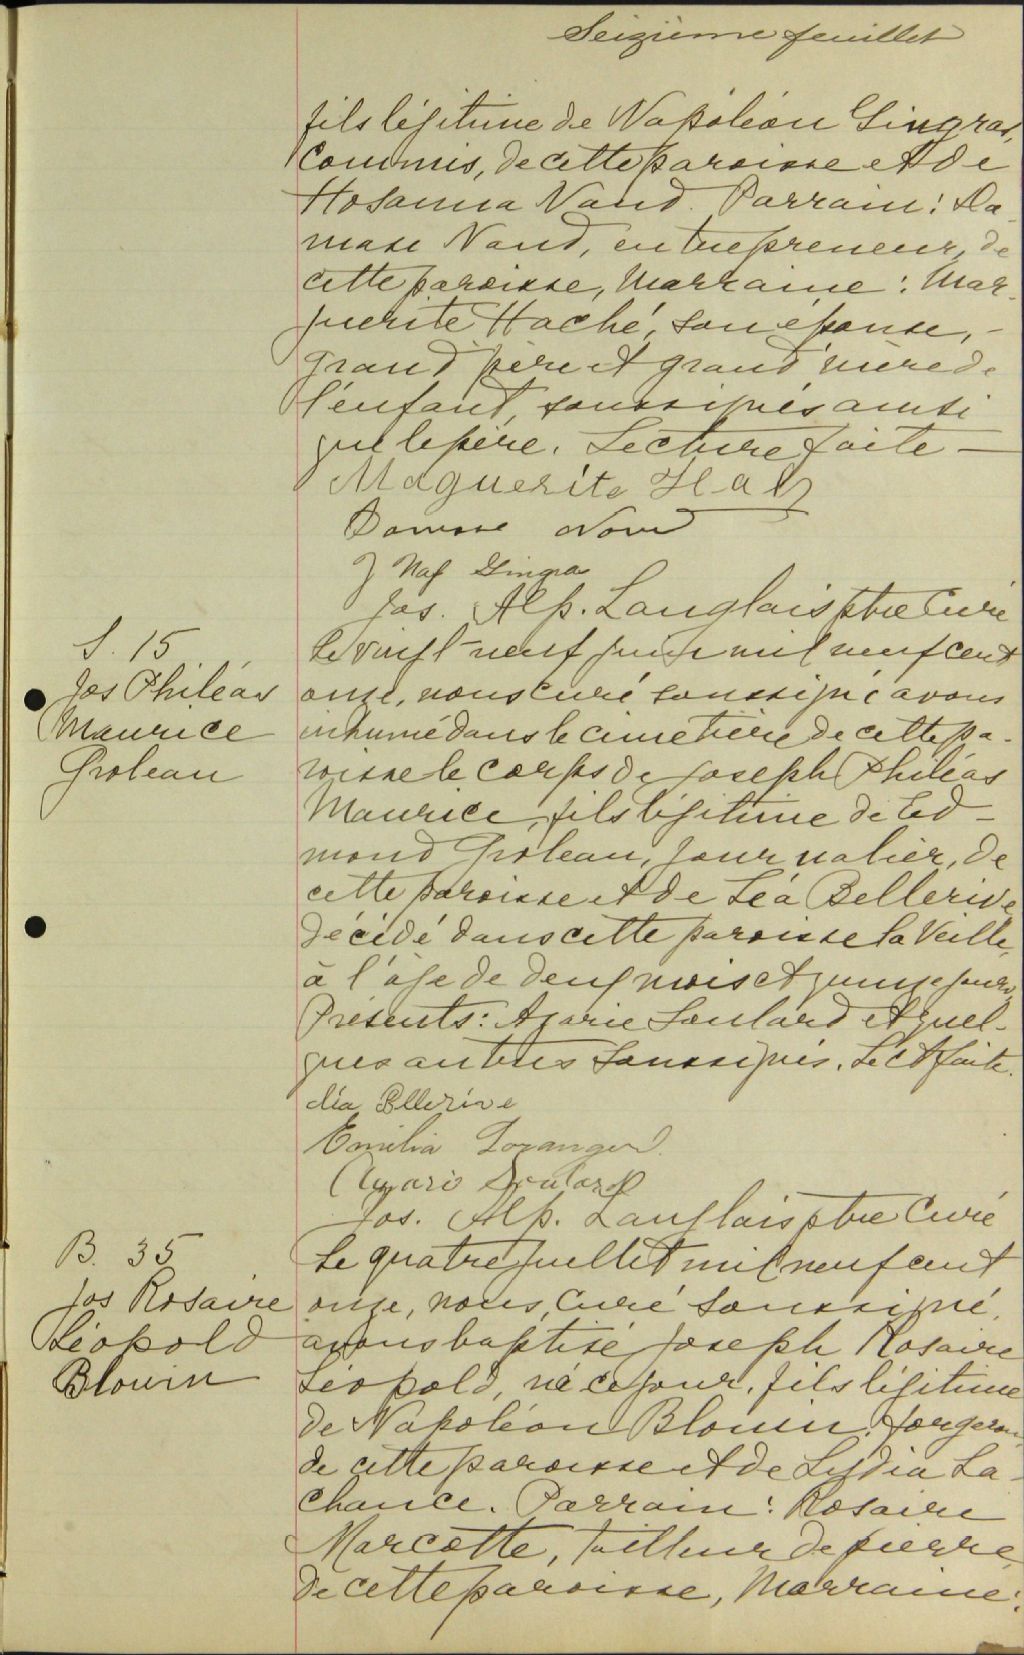 Seizième feuillet
fils légitime de Napoléon Gingras,
commis, de cette paroisse et de
Hosanna Naud. Parrain: Da-
mase Naud, entrepreneur, de
cette paroisse, Marraine: Mar-
guerite Haché, son épouse, -
grand'père et grand'mère de
l'enfant, soussignés ainsi
que le père. Lecture faite -
Maguerite
Damase Naud
J Nap Gingras
Jos. Alp. Langlais ptre Curé
S. 15
Jos Philéas
Maurice
Groleau
Le vingt-neuf juin mil neuf cent
onze, nous curé soussigné avons
inhumé dans le cimetière de cette pa-
roisse le corps de Joseph Philéas
Maurice, fils légitime de Ed-
mond Groleau, journalier, de
cette paroisse et de Léa Bellerive
décédé dans cette paroisse la veille,
à l'âge de deux mois et quinze jours,
Présents: Azarie Soulard et quel-
ques autres soussignés. Lect faite.
Léa Bellerive
Emilia Loranger
Azarie Soulard
Jos. Alp. Langlais ptre Curé
B. 35
Jos Rosaire
Léopold
Blouin
Le quatre juillet mil neuf cent
onze, nous, Curé soussigné,
avons baptisé Joseph Rosaire
Léopold, né ce jour, fils légitime
de Napoléon Blouin, forgeron,
de cette paroisse et de Lydia La-
chance. Parrain: Rosaire
Marcotte, tailleur de pierre
de cette paroisse, Marraine: